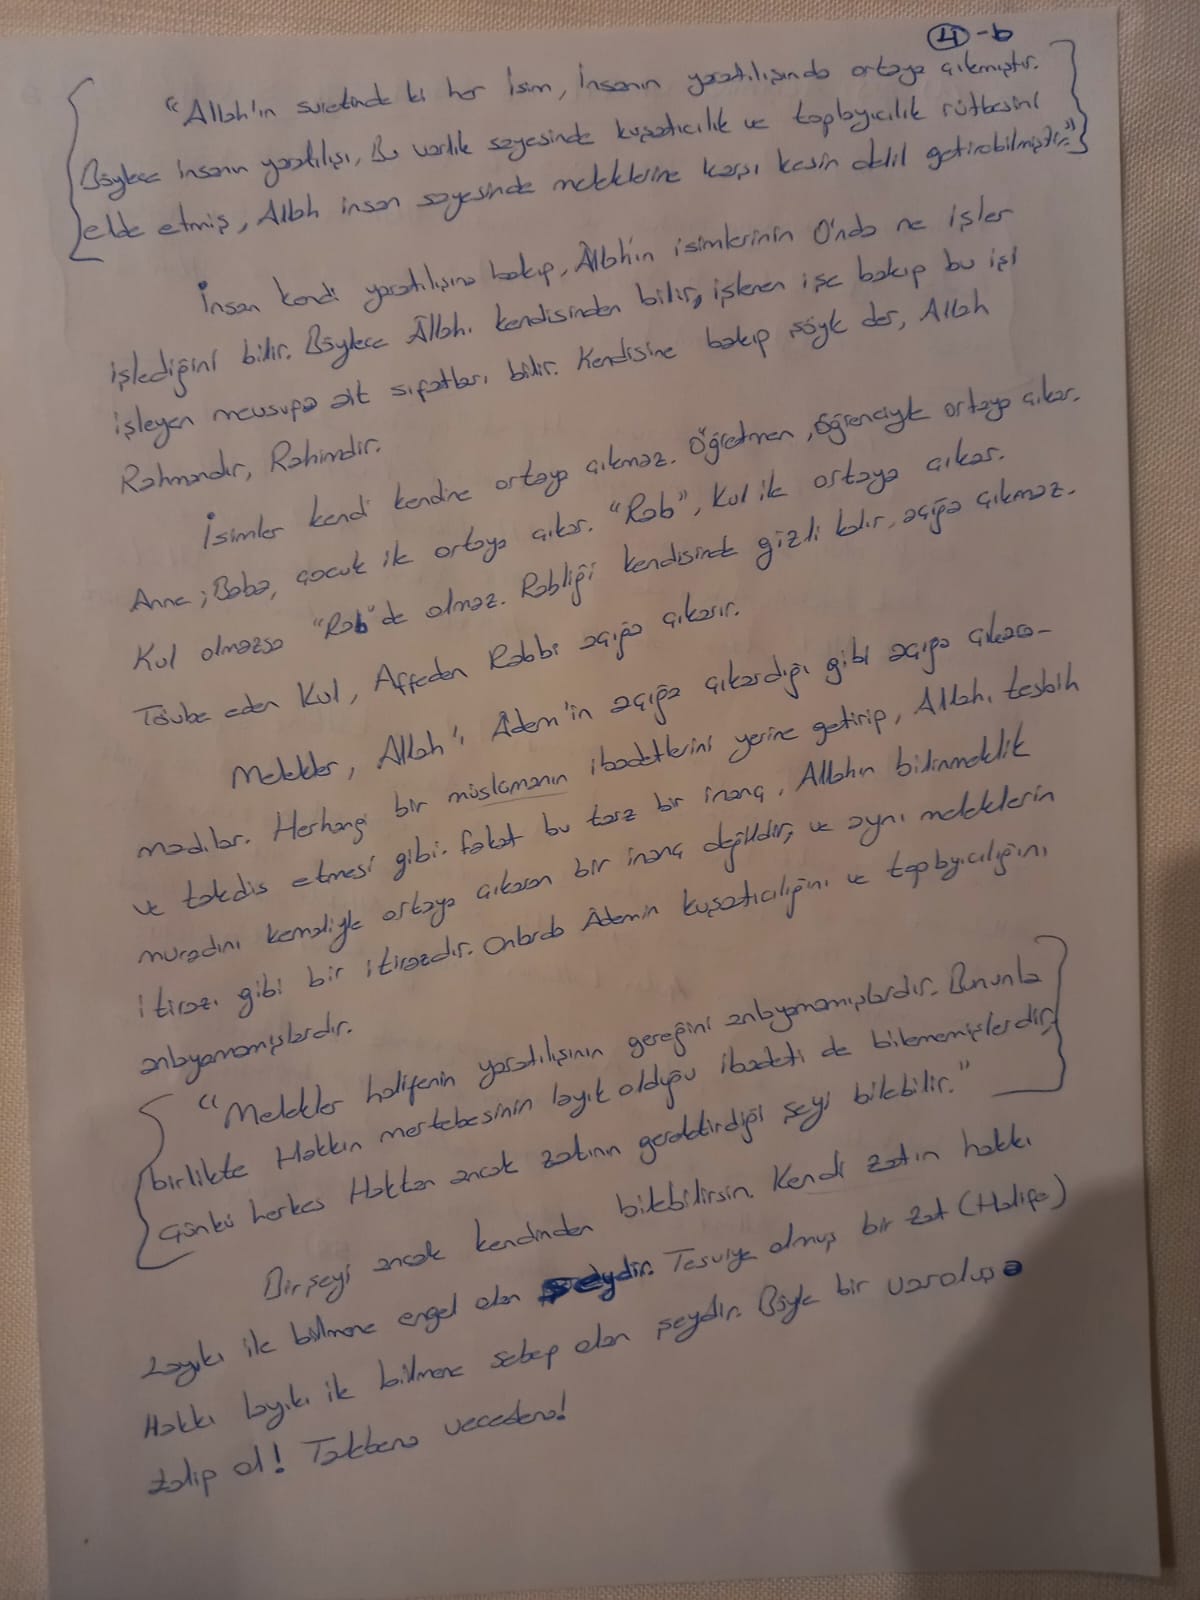 4-b
"Allah'ın suretinde ki her İsim, İnsanın yaratılışında ortaya çıkmıştır.
Böylece insanın yaratılışı, Bu varlık sayesinde kuşatıcılık ve toplayıcılık rütbesini
elde etmiş, Allah insan sayesinde meleklerine karşı kesin delil getirebilmiştir."
İnsan kendi yaratılışına bakıp, Âllah'ın isimlerinin O'nda ne işler
işlediğini bilir. Böylece Âllahı kendisinden bilir, işlenen işe bakıp bu işi
işleyen mevsufa ait sıfatları bilir. Kendisine bakıp şöyle der, Allah
Rahmandır, Rahimdir.
İsimler kendi kendine ortaya çıkmaz. Öğretmen, öğrenciyle ortaya çıkar.
Anne; Baba, çocuk ile ortaya çıkar. "Rab", Kul ile ortaya çıkar.
Kul olmazsa "Rab" de olmaz. Rabliği kendisinde gizli kalır, açığa çıkmaz.
Tövbe eden Kul, Affeden Rabbi açığa çıkarır.
Melekler, Allah'ı Âdem'in açığa çıkardığı gibi açığa çıkara-
madılar. Herhangi bir müslümanın ibadetlerini yerine getirip, Allahı tesbih
ve takdis etmesi gibi. Fakat bu tarz bir inanç, Allahın bilinmeklik
muradını kemaliyle ortaya çıkaran bir inanç değildir, ve aynı meleklerin
itirazı gibi bir itirazdır. Onlarda Âdemin kuşatıcılığını ve toplayıcılığını
anlayamamışlardır.
"Melekler halifenin yaratılışının gereğini anlayamamışlardır. Bununla
birlikte Hakkın mertebesinin layık olduğu ibadeti de bilememişlerdir,
Çünkü herkes Haktan ancak zatının gerektirdiği şeyi bilebilir."
Birşeyi ancak kendinden bilebilirsin. Kendi zatın hakkı
Layıkı ile bilmene engel olan şeydir. Tesviye olmuş bir zat (Halife)
Hakkı layıkı ile bilmene sebep olan şeydir. Böyle bir varoluşa
talip ol! Talebena vecedena!